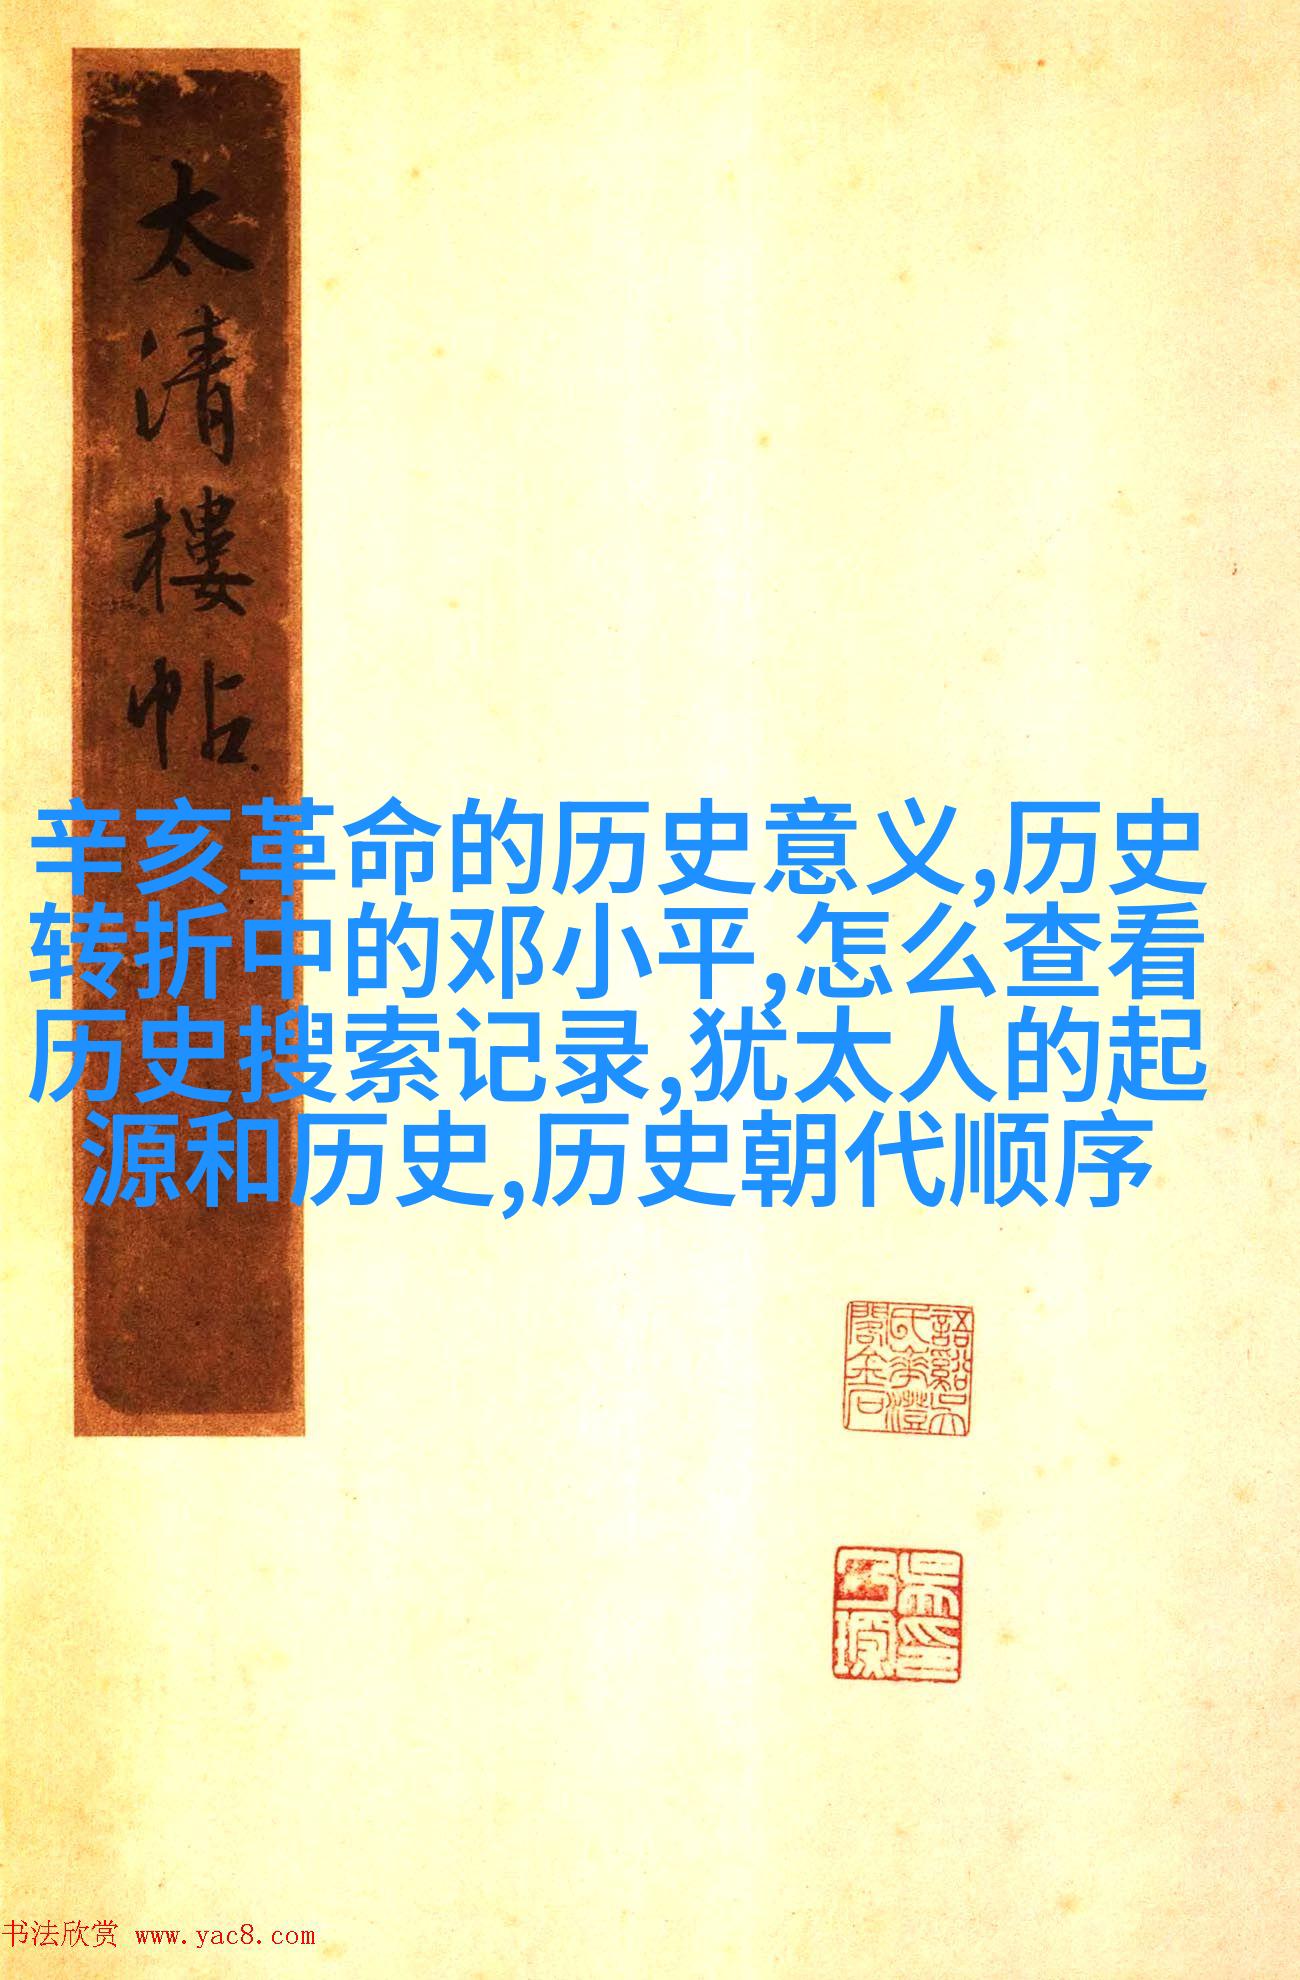 太清樓帖
辛亥革命的历史意义,历史
转折中的邓小平,怎么查看
历史搜索记录,犹太人的起
源和历史,历史朝代顺序
书法欣赏 www.yac8.com